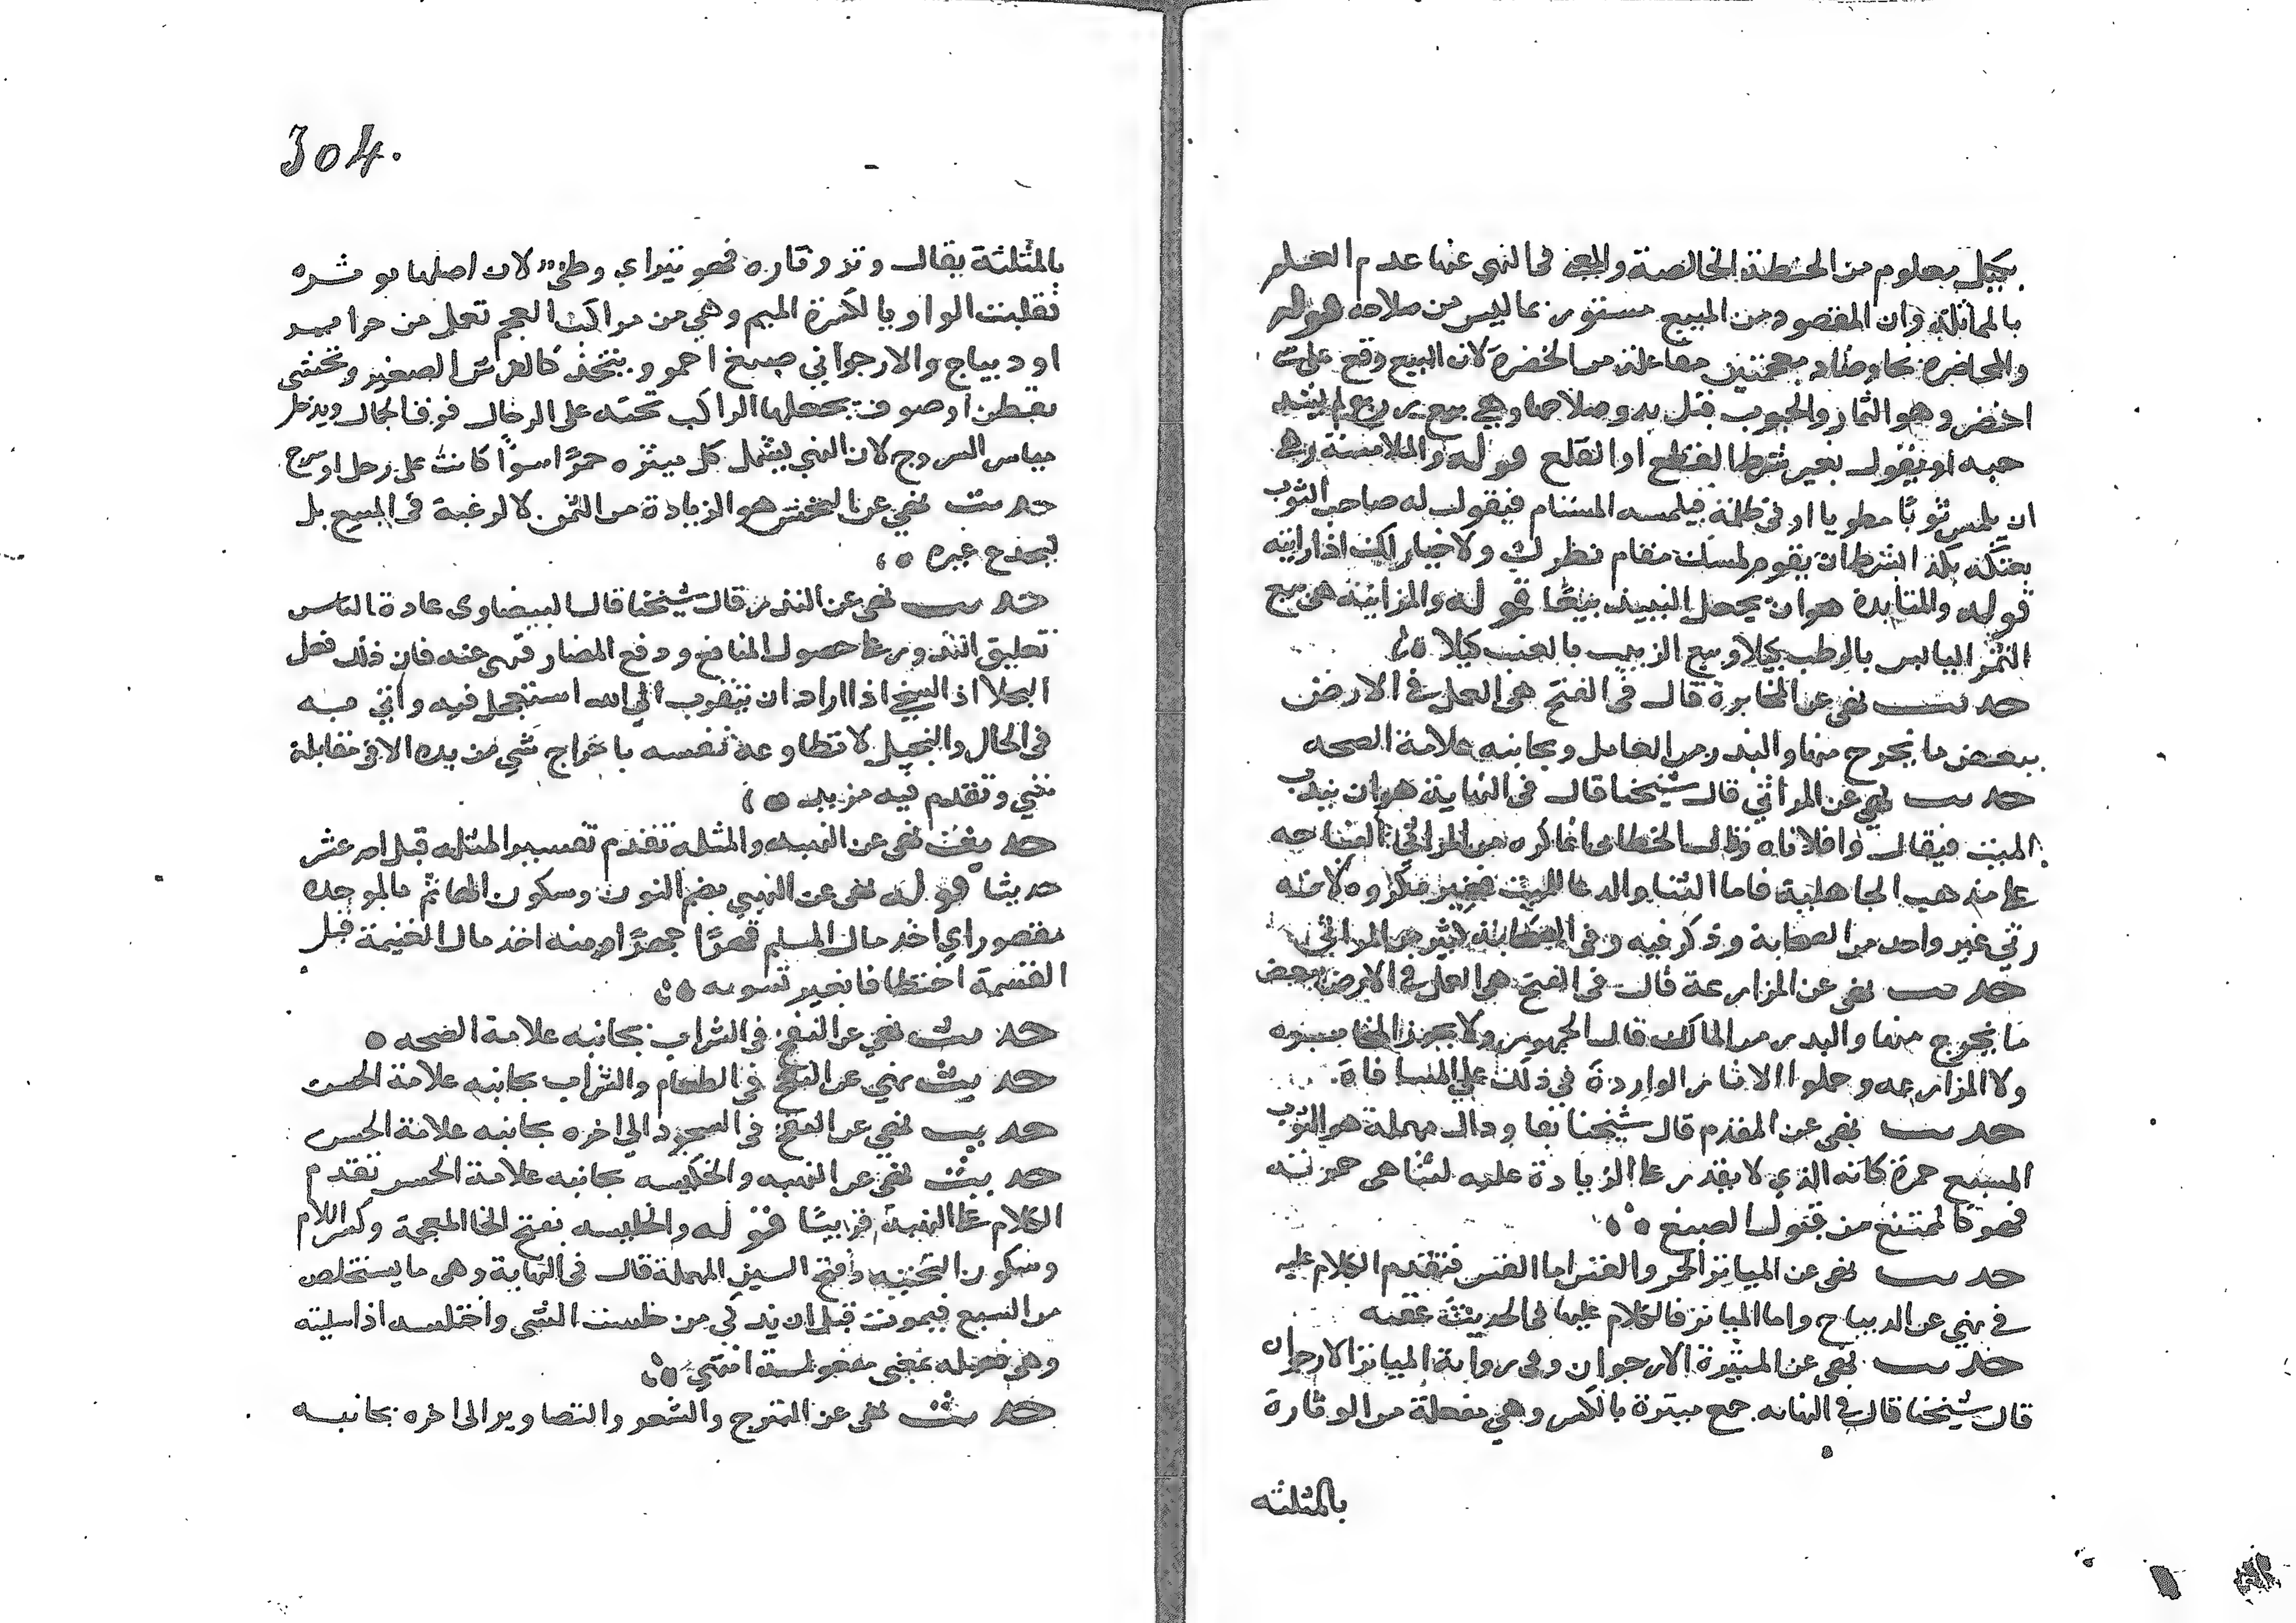 بكيل معلوم من الحنطة الخالصة والمعنى في النهي عنها عدم العلم
بالمماثلة وان المقصود من المبيع مستور بما ليس من صلاحه قوله
والمخاضرة بخاء وضاد معجمتين مفاعلة من الخضرة لان البيع وقع على شيء
اخضر وهو الثمار والحبوب قبل بدو صلاحها وهي بيع زرع لم يشتد
حبه او بقول بغير شرط القطع او القلع قوله والملامسة وهي
ان يلمس ثوبا مطويا او في ظلمة فيلمسه المستام فيقول له صاحب الثوب
بعتكه بكذا بشرط ان يقوم لمسك مقام نظرك ولا خيار لك اذا رايته
قوله والمنابذة هو ان يجعل النبيذ بيعا قوله والمزابنة هي بيع
التمر اليابس بالرطب كيلا وبيع الزبيب بالعنب كيلا
حديث نهى عن المخابرة قال في الفتح هي العمل في الارض
ببعض ما يخرج منها والبذر من العامل وبجانبه علامة الصحه
حديث نهي عن المراثي قال شيخنا قال في النهاية هو ان يندب
الميت فيقال وافلاناه وقال الخطابي انما كره من المراثي النياحه
على مذهب الجاهلية فاما الثنا والدعا للميت فغير مكروه لانه
رثي غير واحد من الصحابة وذكر فيه وفي الصحابة كثير من المراثي
حديث نهى عن المزارعة قال في الفتح هي العمل في الارض ببعض
ما يخرج منها والبدر من المالك قال الجمهور ولا يجوز المخابره
ولا المزارعه وحملوا الاثار الواردة في ذلك على المساقاة
حديث نهى عن المفدم قال شيخنا بفا ودال مهملة هو الثوب
المشبع حمرة كانه الذي لا يقدر على الزيادة عليه لتناهي حمرته
فهو كالممتنع من قبول الصبغ
حديث نهى عن المياثر الحمر والقسي اما القسي فتقدم الكلام عليه
في نهي عن الديباج واما المياثر فالكلام عليها في الحديث عقبه
حديث نهى عن الميثرة الارجوان وفي رواية المياثر الارجوان
قال شيخنا قال في النهايه جمع ميثرة بالكسر وهي مفعلة من الوثارة
بالمثلثه
304.
بالمثلثة يقال وثر وثارة فهو وثير اي وطئ لان اصلها موثرة
فقلبت الواو يا لكسرة الميم وهي من مراكب العجم تعمل من حرير
او ديباج والارجواني صبغ احمر ويتخذ كالفراش الصغير وتحشى
بقطن او صوف يجعلها الراكب تحته على الرحال فوق الجمال ويدخل
مياثر السروج لان النهي يشمل كل ميثره حمرا سوا كانت على رحل او سرج
حديث نهي عن النجش هو الزيادة من الثمن لا لرغبة في المبيع بل
ليخدع غيره
حديث نهى عن النذر قال شيخنا قال البيضاوي عادة الناس
تعليق النذور على حصول المنافع ودفع المضار فنهى عنه فان ذلك فعل
البخلا اذ السخي اذا اراد ان يتقرب الى الله استعجل فيه واتى به
في الحال والبخيل لا تطاوعه نفسه باخراج شي من يده الا في مقابلة
شي وتقدم فيه مزيد
حديث نهى عن النهبه والمثله تقدم تفسير المثله قبل احد عشر
حديثا قوله نهى عن النهبى بضم النون وسكون الها ثم بالموحده
مقصور اي اخذ مال المسلم قهرا جهرا ومنه اخذ مال الغنيمة قبل
القسمة اختطافا بغير تسويه
حديث نهي عن النفخ في الشراب بجانبه علامة الصحه
حديث نهي عن النفخ في الطعام والشراب بجانبه علامة الحسن
حديث نهي عن النفخ في السجود الى اخره بجانبه علامة الحسن
حديث نهي عن النهبه والخليسه بجانبه علامة الحسن تقدم
الكلام على النهبة قريبا قوله والخليسه بفتح الخا المعجمة وكسر اللام
وسكون التحتيه وفتح السين المهملة قال في النهاية وهي ما يستخلص
من السبع فيموت قبل ان يذكى من خلست الشي واختلسه اذا سلبته
وهي فعيله بمعنى مفعولة انتهي
حديث نهى عن النوح والشعر والتصاوير الى اخره بجانبه